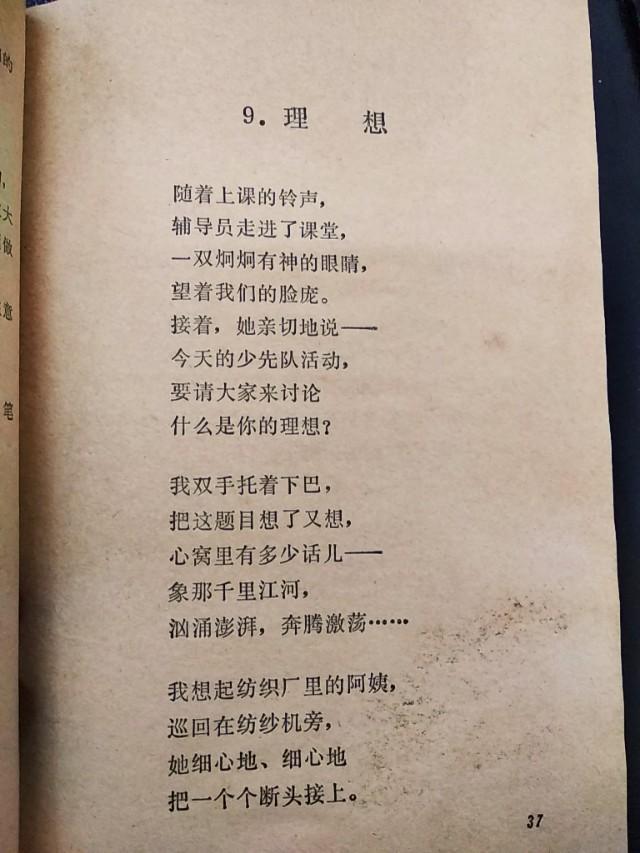 的
大
做
意
笔
9.理 想
随着上课的铃声，
辅导员走进了课堂，
一双炯炯有神的眼睛，
望着我们的脸庞。
接着，她亲切地说——
今天的少先队活动，
要请大家来讨论
什么是你的理想？
我双手托着下巴，
把这题目想了又想，
心窝里有多少话儿——
象那千里江河，
汹涌澎湃，奔腾激荡……
我想起纺织厂里的阿姨，
巡回在纺纱机旁，
她细心地、细心地
把一个个断头接上。
37